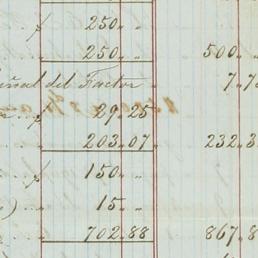 f 250. "
250. " 500. "
del Factor 7.7
f 29.25
203.07 232.3
f 150. "
) 15. "
702.88 867.8